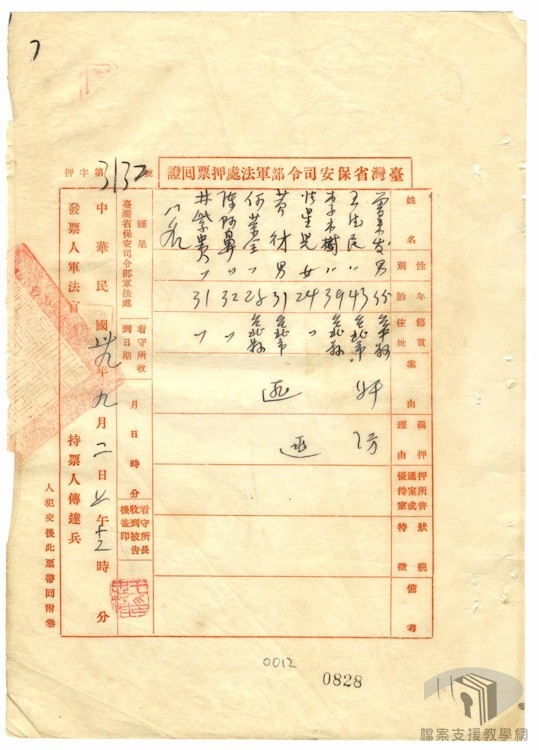 7
臺灣省保安司令部軍法處押票回證
押字第3137號
姓名
性別
年齡
籍貫住址
案由
羈押理由
押所普通室或優待室
狀貌特徵
備考
王
男
43
台北市
李木樹
〃
39
台北縣
女
24
〃
黃
男
31
台北市
何
〃
28
台北縣
陳阿鼻
〃
32
〃
林紫貴
〃
31
〃
八名
逃
謹呈
臺灣省保安司令部軍法處
看守所收到日期
月
日
時
分
看守所長收到被告後蓋印
中華民國卅九年九月二日上午十二時分
發票人軍法官
持票人傳達兵
人犯交後此票帶回附卷
0012
0828
檔案支援教學網